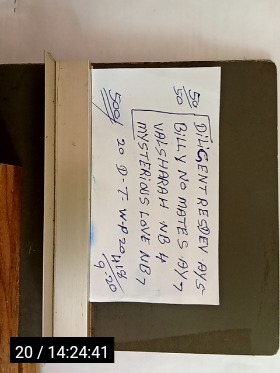 50/50
DILIGENT RESDEV AY5
BILLY NO MATES AY7
VALSHARAH NB4
MYSTERIOUS LOVE NB7
20 D-T-W-P 204
20 / 14:24:41